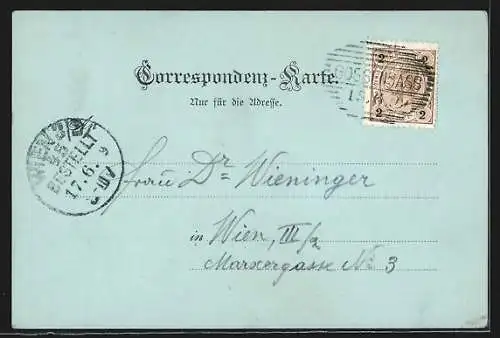 Correspondenz-Karte.
Nur für die Adresse.
2 2
GOSSENSASS
2 2
WIEN 3/3
BESTELLT
17. 6.
Frau Dr Wieninger
in Wien, III/2
Marxergasse No 3